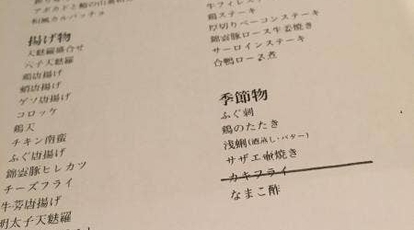 アボカドと鮪の山葵
和風カルパッチョ
揚げ物
天麩羅盛合せ
穴子天麩羅
鶏唐揚げ
蛸唐揚げ
ゲソ唐揚げ
コロッケ
鶏天
チキン南蛮
ふぐ唐揚げ
錦雲豚ヒレカツ
チーズフライ
牛蒡唐揚げ
明太子天麩羅
牛フィレステ
鶏ステーキ
厚切りベーコンステーキ
錦雲豚ロース生姜焼き
サーロインステーキ
合鴨ロース煮
季節物
ふぐ刺
鶏のたたき
浅蜊(酒蒸し・バター)
サザエ壷焼き
カキフライ
なまこ酢